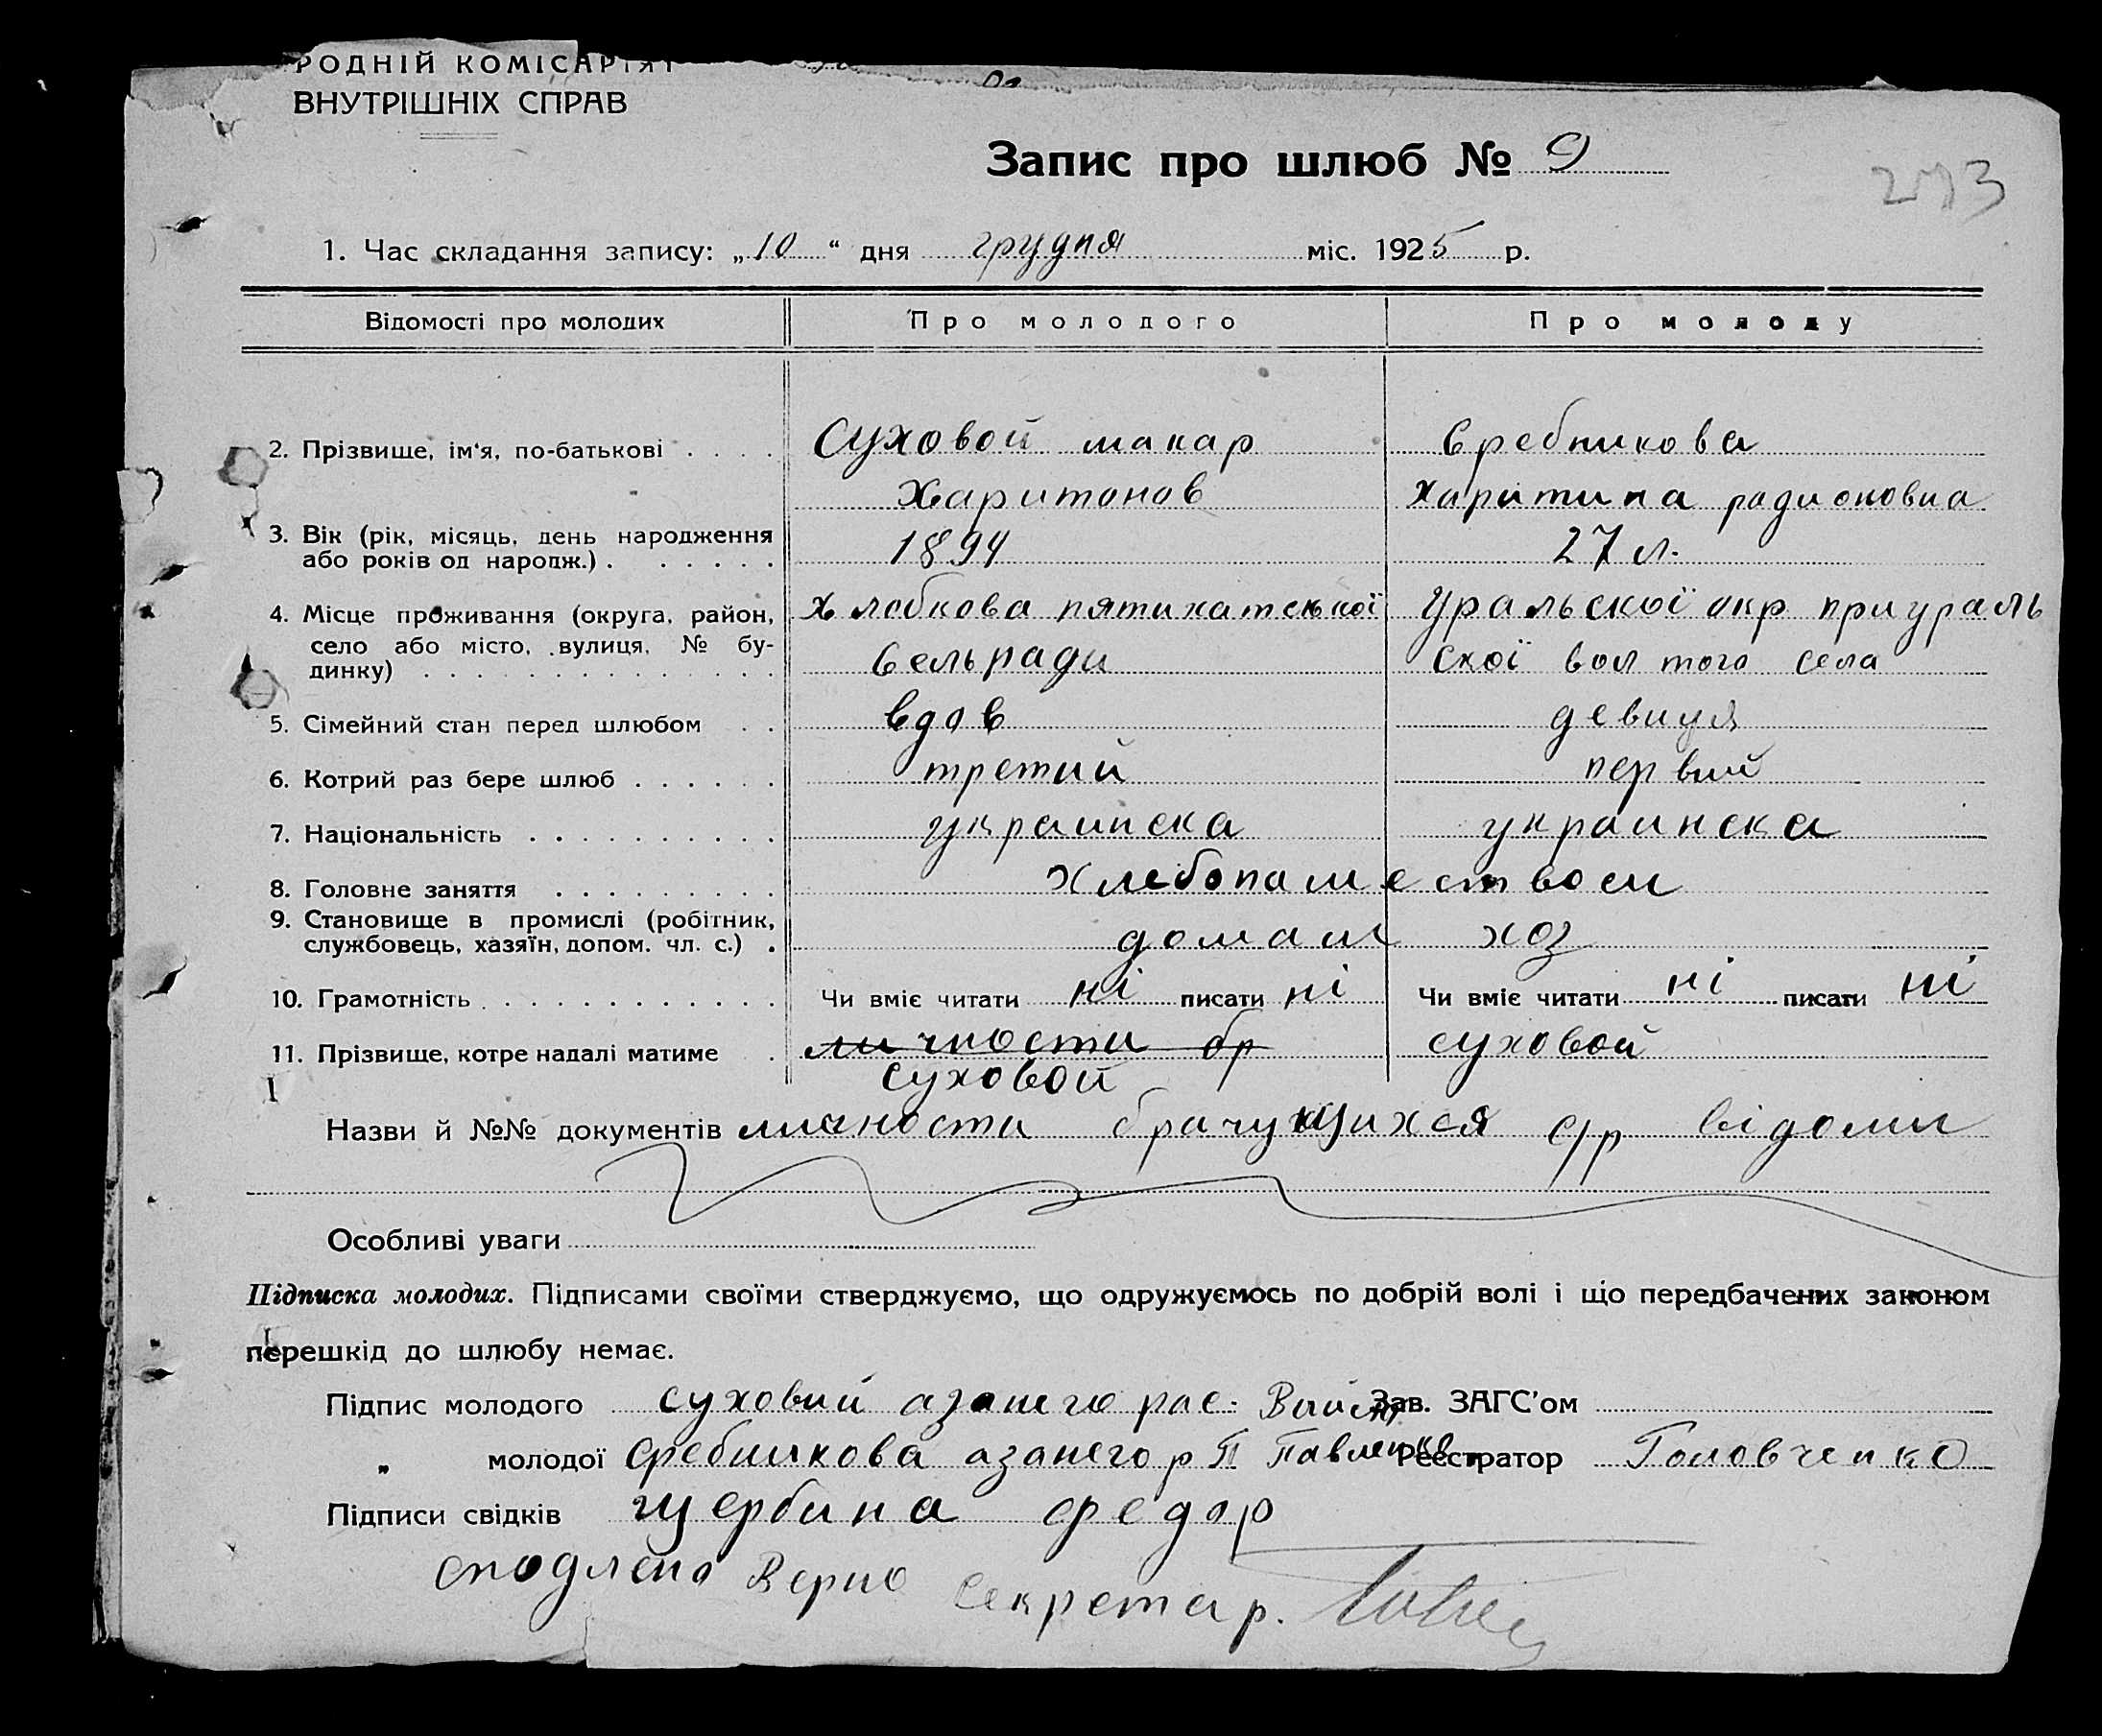 РОДНІЙ КОМІСАРІЯТ
ВНУТРІШНІХ СПРАВ
Запис про шлюб № 9
273
1. Час складання запису: „10“ дня грудня міс. 1925 р.
Відомості про молодих Про молодого Про молоду
2. Прізвище, ім'я, по-батькові . . . . Суховой макар Сребникова
Харитонов Харитина радионовна
3. Вік (рік, місяць, день народження 1894 27 л.
або років од народж.) . . . . . .
4. Місце проживання (округа, район, Хлобкова пятихатської Уральскої окр. приураль
село або місто, вулиця, № бу- Сельради скої вол того села
динку) . . . . . . . . . . . . . .
5. Сімейний стан перед шлюбом . . вдов девиця
6. Котрий раз бере шлюб . . . . . . третий первый
7. Національність . . . . . . . . . . украинска украинска
8. Головне заняття . . . . . . . . . Хлебопашеством
9. Становище в промислі (робітник, домаш хоз
службовець, хазяїн, допом. чл. с.) .
10. Грамотність . . . . . . . . . . . . Чи вміє читати ні писати ні Чи вміє читати ні писати ні
11. Прізвище, котре надалі матиме . личности бр суховой
суховой
Назви й №№ документів личности брачующихся с/р відомы
Особливі уваги
Підписка молодих. Підписами своїми стверджуємо, що одружуємось по добрій волі і що передбачених законом
перешкід до шлюбу немає.
Підпис молодого суховий азанего рас. Зав. ЗАГС'ом
„ молодої Сребникова азанего р П Павленко Реєстратор Головченко
Підписи свідків щербина федор
Верно Секретар.